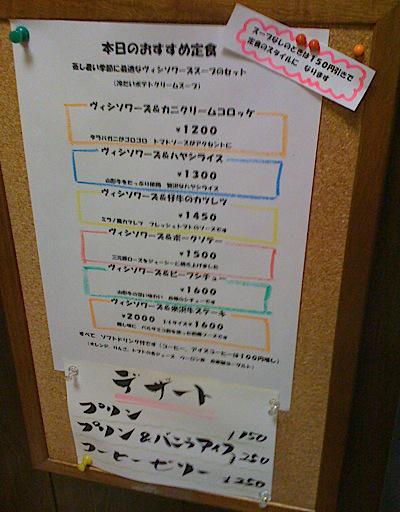 本日のおすすめ定食
蒸し暑い季節に最適なヴィシソワーズスープのセット
(冷たいポテトクリームスープ)
スープなしのときは150円引きで
定食のスタイルに なります
ヴィシソワーズ&カニクリームコロッケ
¥1200
タラバガニがゴロゴロ トマトソースがアクセントに
ヴィシソワーズ&ハヤシライス
¥1300
山形牛をたっぷり使用 贅沢なハヤシライス
ヴィシソワーズ&仔牛のカツレツ
¥1450
ミラノ風カツレツ フレッシュトマトのソースです
ヴィシソワーズ&ポークソテー
¥1500
三元豚ロースをジューシーに焼き上げました
ヴィシソワーズ&ビーフシチュー
¥1600
山形牛の深い味わい 自慢のシチューです
ヴィシソワーズ&米沢牛ステーキ
¥2000 ¥1600
すべて ソフトドリンク付です(コーヒー、アイスコーヒーは100円増し)
デザート
プリン
プリン&バニラアイス
コーヒーゼリー
250